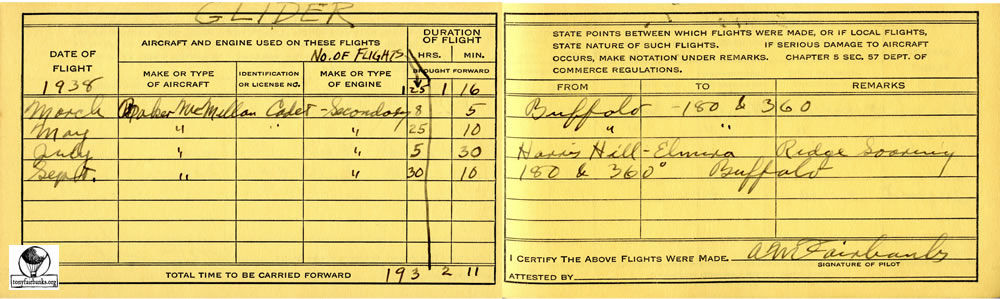 GLIDER
DATE OF FLIGHT
1938
AIRCRAFT AND ENGINE USED ON THESE FLIGHTS
No. OF FLIGHTS
DURATION OF FLIGHT
HRS. MIN.
MAKE OR TYPE OF AIRCRAFT
IDENTIFICATION OR LICENSE NO.
MAKE OR TYPE OF ENGINE
BROUGHT FORWARD
125 1 16
March Baker McMillan Cadet - Secondary 8 5
May " " 25 10
July " " 5 30
Sept. " " 30 10
TOTAL TIME TO BE CARRIED FORWARD 193 2 11
tonyfairbanks.org
STATE POINTS BETWEEN WHICH FLIGHTS WERE MADE, OR IF LOCAL FLIGHTS,
STATE NATURE OF SUCH FLIGHTS. IF SERIOUS DAMAGE TO AIRCRAFT
OCCURS, MAKE NOTATION UNDER REMARKS. CHAPTER 5 SEC. 57 DEPT. OF
COMMERCE REGULATIONS.
FROM TO REMARKS
Buffalo - 180 & 360
" "
Harris Hill - Elmira Ridge Soaring
180 & 360° Buffalo
I CERTIFY THE ABOVE FLIGHTS WERE MADE. A M Fairbanks
SIGNATURE OF PILOT
ATTESTED BY